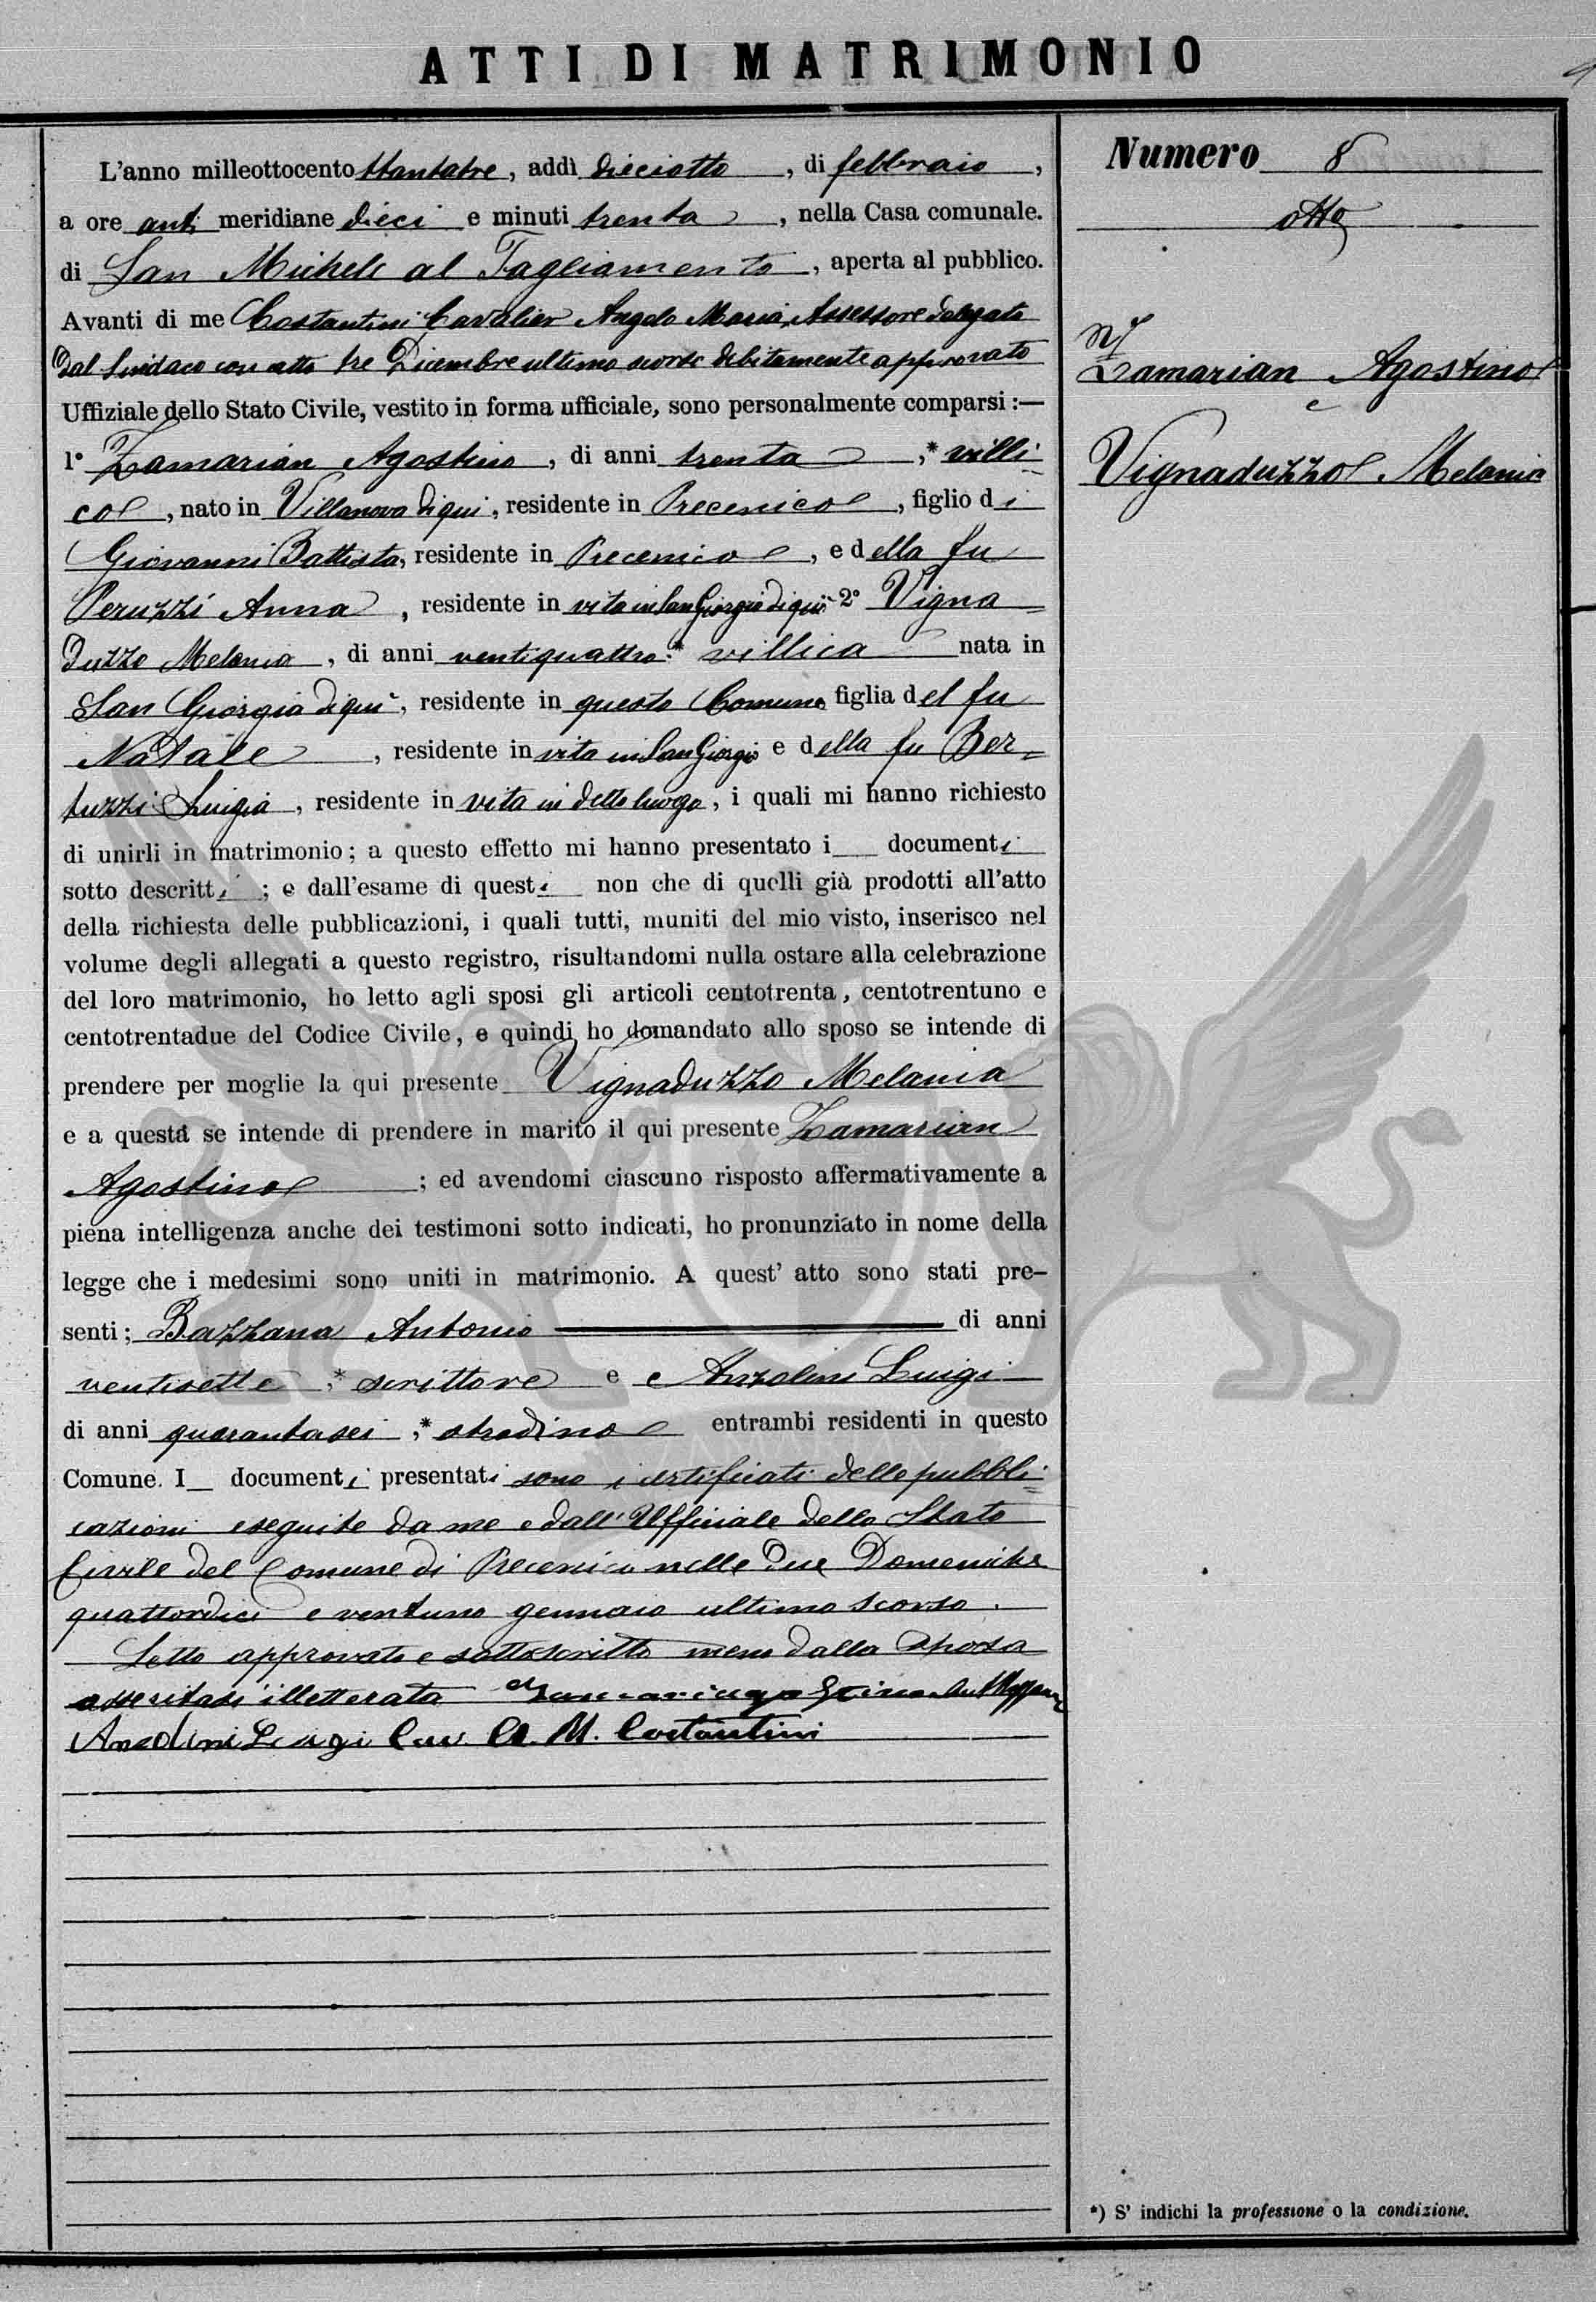 ATTI DI MATRIMONIO
L'anno milleottocento ttantatre, addì dieciotto, di febbraio,
a ore anti meridiane dieci e minuti trenta, nella Casa comunale.
di San Michele al Tagliamento, aperta al pubblico.
Avanti di me Costantini Cavalier Angelo Maria, Assessore delegato
dal Sindaco con atto tre Dicembre ultimo scorso debitamente approvato
Uffiziale dello Stato Civile, vestito in forma ufficiale, sono personalmente comparsi :—
1° Zamarian Agostino, di anni trenta, * villi-
co, nato in Villanova di qui, residente in Precenico, figlio di
Giovanni Battista, residente in Precenico, e della fu
Peruzzi Anna, residente in vita in San Giorgio di qui 2° Vigna-
duzzo Melania, di anni ventiquattro * villica nata in
San Giorgio di qui, residente in questo Comune figlia del fu
Natale, residente in vita in San Giorgio e della fu Ber-
tuzzi Luigia, residente in vita in detto luogo, i quali mi hanno richiesto
di unirli in matrimonio; a questo effetto mi hanno presentato i documenti
sotto descritti; e dall'esame di questi non che di quelli già prodotti all'atto
della richiesta delle pubblicazioni, i quali tutti, muniti del mio visto, inserisco nel
volume degli allegati a questo registro, risultandomi nulla ostare alla celebrazione
del loro matrimonio, ho letto agli sposi gli articoli centotrenta, centotrentuno e
centotrentadue del Codice Civile, e quindi ho domandato allo sposo se intende di
prendere per moglie la qui presente Vignaduzzo Melania
e a questa se intende di prendere in marito il qui presente Zamarian
Agostino; ed avendomi ciascuno risposto affermativamente a
piena intelligenza anche dei testimoni sotto indicati, ho pronunziato in nome della
legge che i medesimi sono uniti in matrimonio. A quest' atto sono stati pre-
senti; Bazzana Antonio di anni
ventisette, * scrittore e Anzolini Luigi
di anni quarantasei, * stradino entrambi residenti in questo
Comune. I documenti presentati sono i certificati delle pubbli-
cazioni eseguite da me e dall'Ufficiale dello Stato
Civile del Comune di Precenico nelle due Domeniche
quattordici e ventuno gennaio ultimo scorso.
Letto approvato e sottoscritto meno dalla sposa
asseritasi illetterata
Anzolini Luigi Cav. A. M. Costantini
Numero 8
otto
Zamarian Agostino
e
Vignaduzzo Melania
*) S' indichi la professione o la condizione.